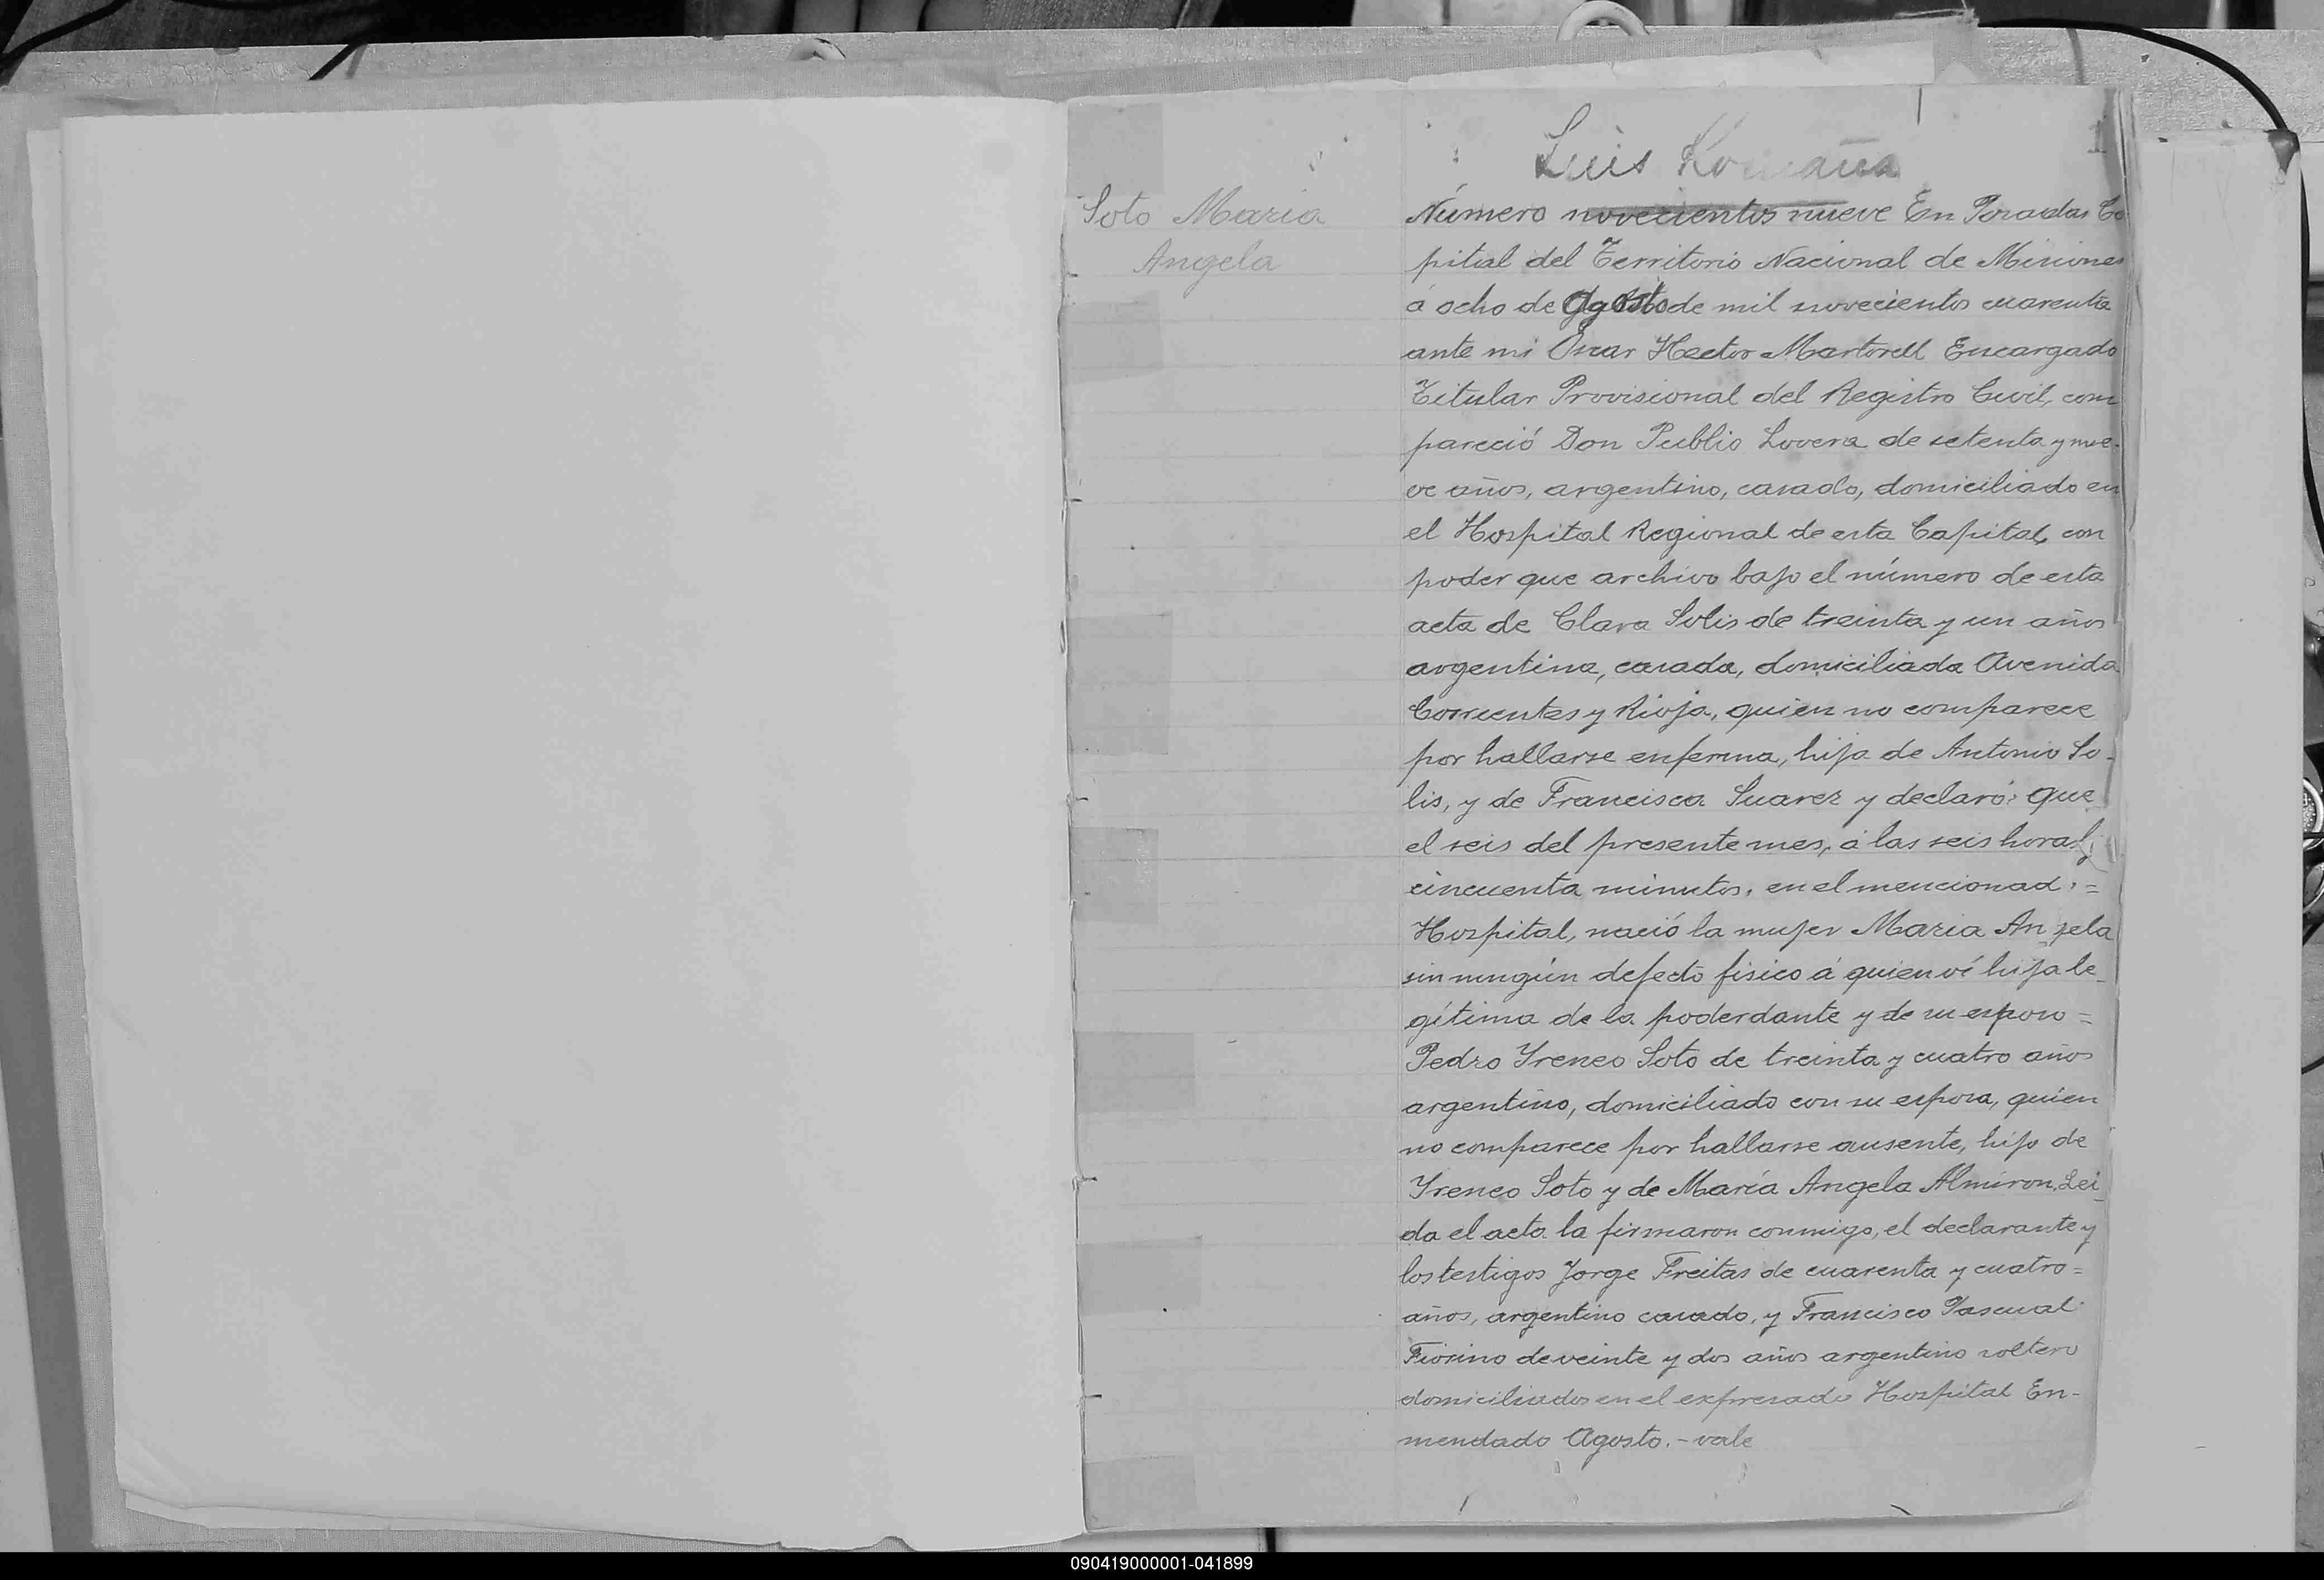 Luis Romaña
1
Soto Maria
Angela
Número novecientos nueve En Posadas Ca
pital del Territorio Nacional de Misiones
á ocho de Agosto de mil novecientos cuarenta
ante mi Oscar Hector Martorell Encargado
Titular Provisional del Registro Civil, com
pareció Don Publio Lovera de setenta y nue-
ve años, argentino, casado, domiciliado en
el Hospital Regional de esta Capital, con
poder que archivo bajo el número de esta
acta de Clara Solis de treinta y un años
argentina, casada, domiciliada Avenida
Corrientes y Rioja, quien no comparece
por hallarse enferma, hija de Antonio So-
lis, y de Francisca Suarez y declaró: que
el seis del presente mes, á las seis horas y
cincuenta minutos, en el mencionado =
Hospital, nació la mujer Maria Angela
sin ningún defecto fisico á quien ví hija le-
gítima de la poderdante y de su esposo =
Pedro Yreneo Soto de treinta y cuatro años
argentino, domiciliado con su esposa, quien
no comparece por hallarse ausente, hijo de
Yreneo Soto y de María Angela Almiron. Lei-
da el acta la firmaron conmigo, el declarante y
los testigos Jorge Freitas de cuarenta y cuatro =
años, argentino casado, y Francisco Pascual
Fiorino de veinte y dos años argentino soltero
domiciliados en el expresado Hospital En-
mendado Agosto. - vale
090419000001-041899